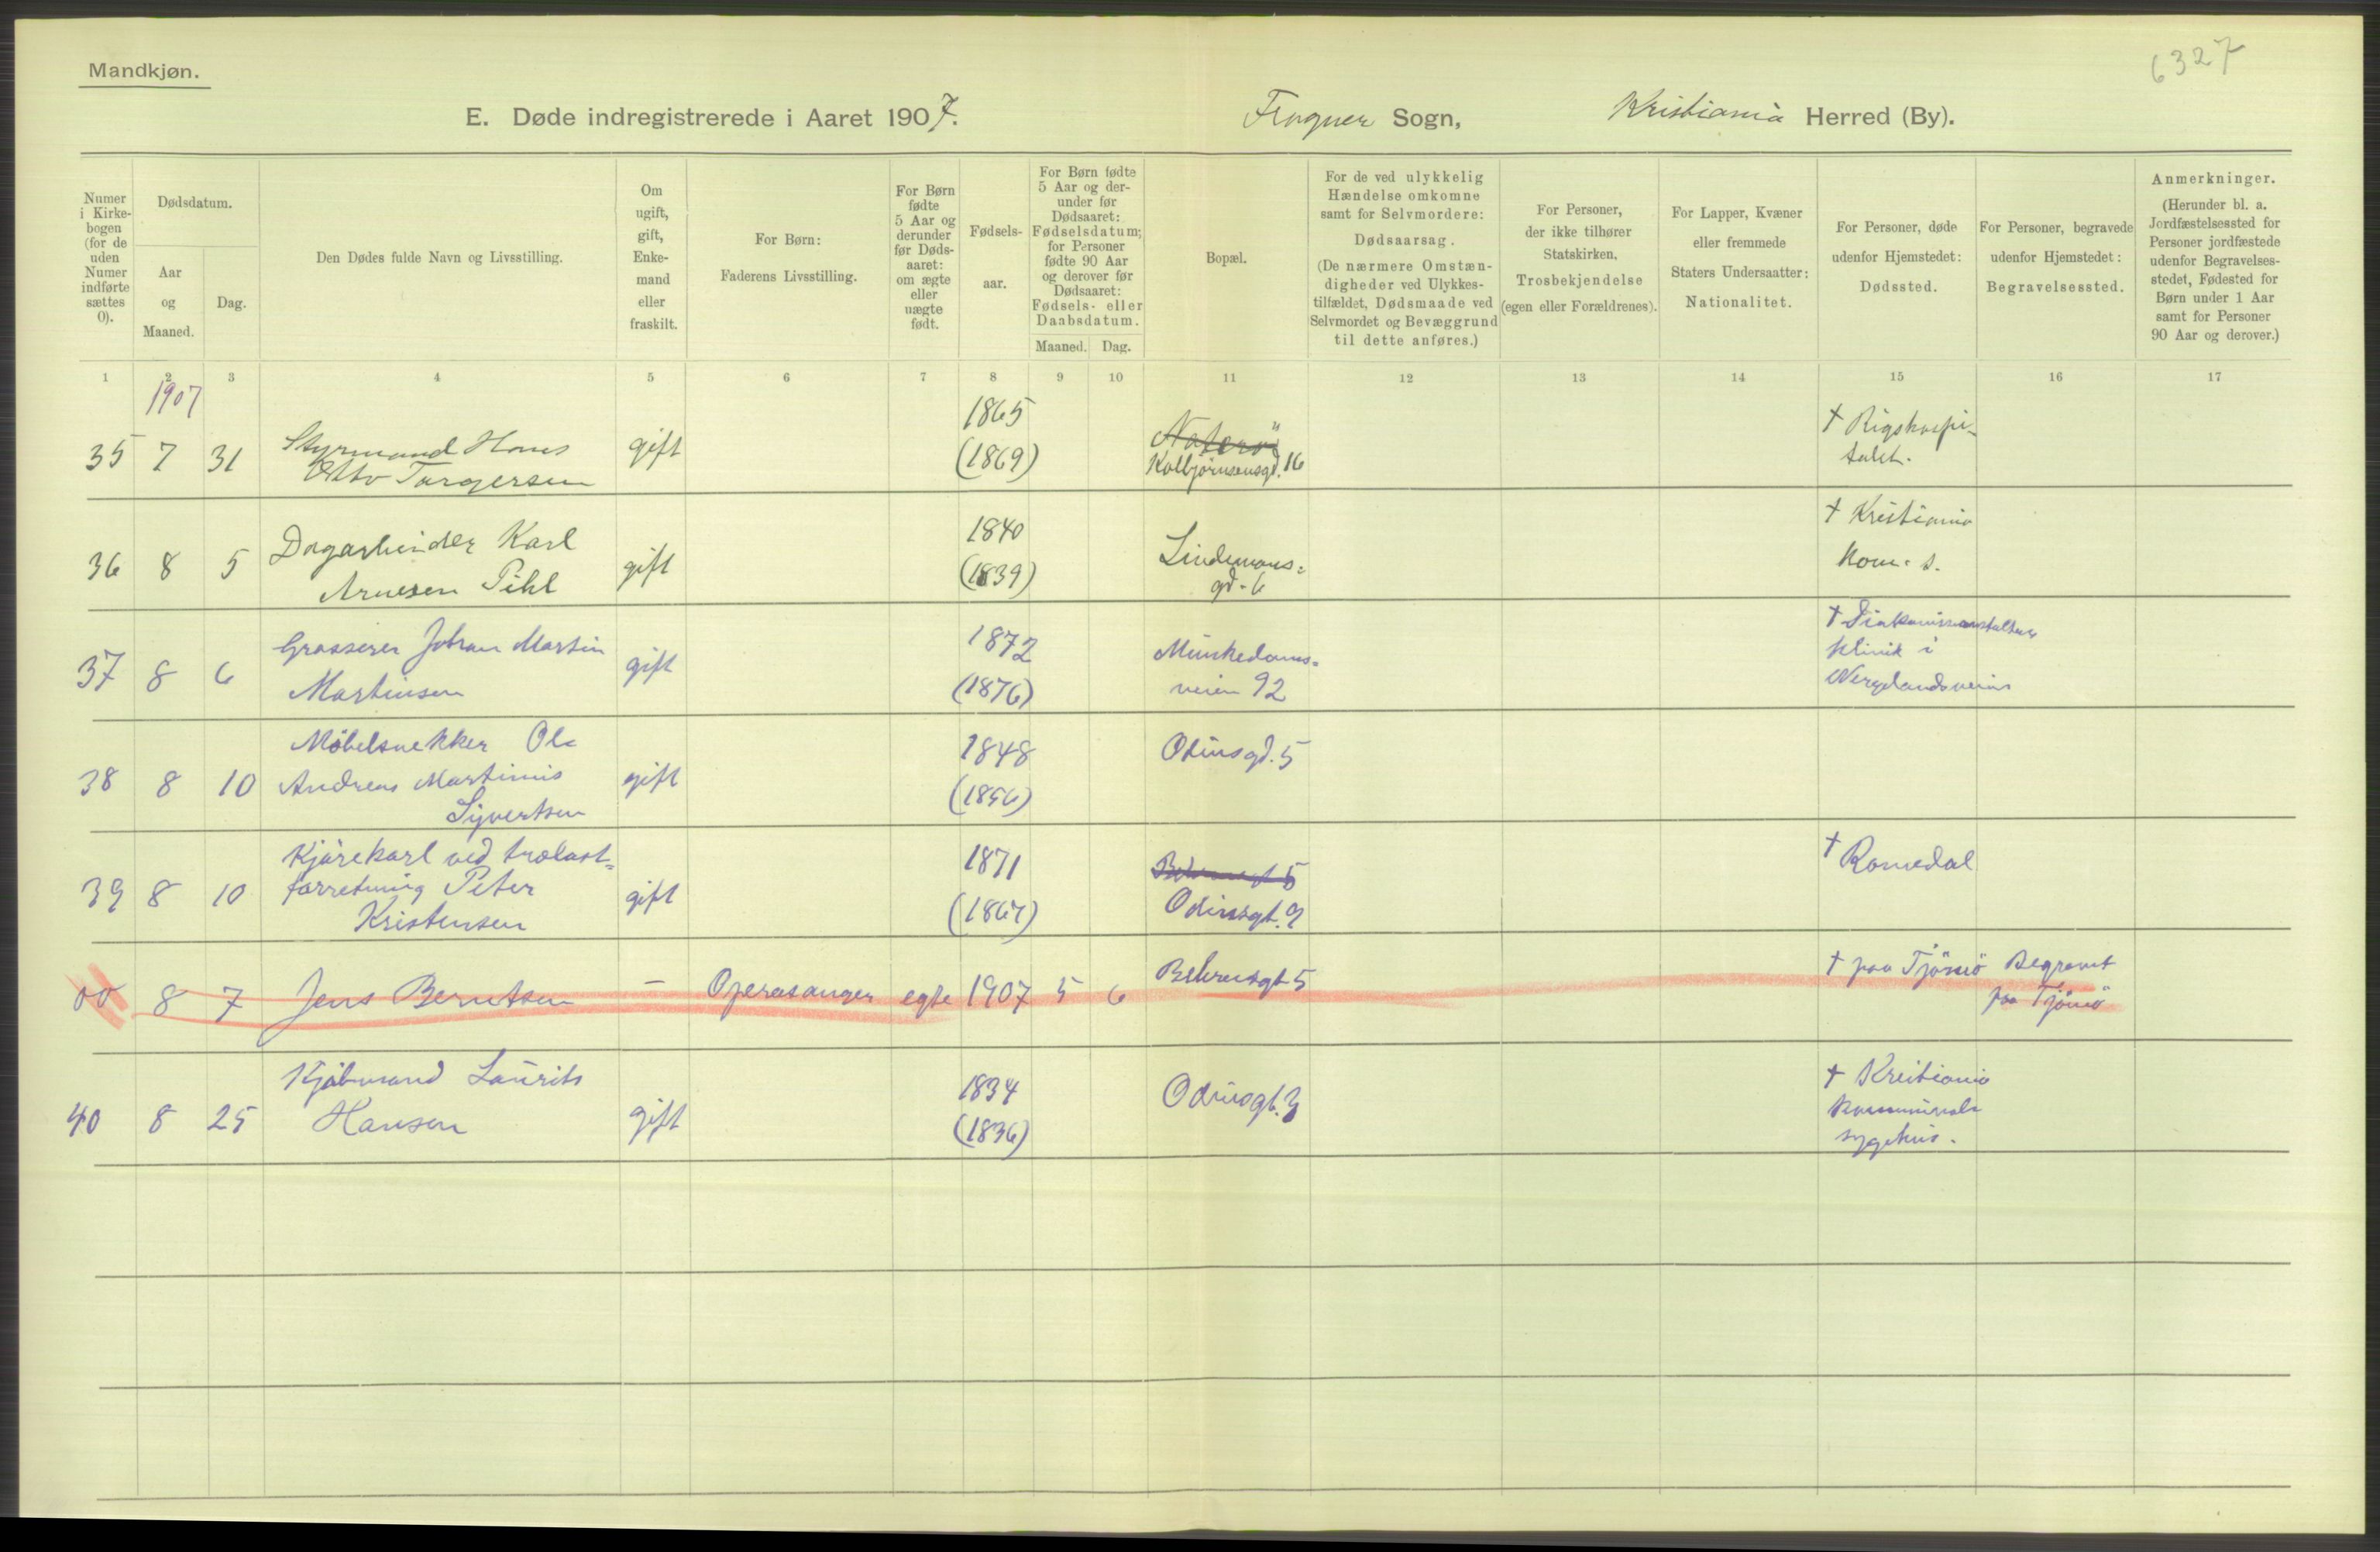 6327
Mandkjøn.
E. Døde indregistrerede i Aaret 1907. Frogner Sogn, Kristiania Herred (By).
Numer i Kirkebogen (for de uden Numer indførte sættes 0).
Dødsdatum.
Aar og Maaned.
Dag.
Den Dødes fulde Navn og Livsstilling.
Om ugift, gift, Enkemand eller fraskilt.
For Børn:
Faderens Livsstilling.
For Børn fødte 5 Aar og derunder før Dødsaaret: om ægte eller uægte født.
Fødselsaar.
For Børn fødte 5 Aar og derunder før Dødsaaret: Fødselsdatum; for Personer fødte 90 Aar og derover før Dødsaaret: Fødsels- eller Daabsdatum.
Maaned. Dag.
Bopæl.
For de ved ulykkelig Hændelse omkomne samt for Selvmordere: Dødsaarsag. (De nærmere Omstændigheder ved Ulykkestilfældet, Dødsmaade ved Selvmordet og Bevæggrund til dette anføres.)
For Personer, der ikke tilhører Statskirken, Trosbekjendelse (egen eller Forældrenes).
For Lapper, Kvæner eller fremmede Staters Undersaatter: Nationalitet.
For Personer, døde udenfor Hjemstedet: Dødssted.
For Personer, begravede udenfor Hjemstedet: Begravelsessted.
Anmerkninger.
(Herunder bl. a. Jordfæstelsessted for Personer jordfæstede udenfor Begravelsesstedet, Fødested for Børn under 1 Aar samt for Personer 90 Aar og derover.)
1 2 3 4 5 6 7 8 9 10 11 12 13 14 15 16 17
1907
35 7 31 Styrmand Hans Otto Torgersen gift 1865 (1869) Kolbjørnsensgd. 16 † Rigshospitalet.
36 8 5 Dagarbeider Karl Arnesen Pihl gift 1840 (1839) Lindemans= gd. 6 † Kristiania Kom. s.
37 8 6 Grosserer Johan Martin Martinsen gift 1872 (1876) Munkedams= veien 92 † Diakonisseanstaltens klinik i Wergelandsveien
38 8 10 Møbelsnekker Ole Andreas Martinius Syvertsen gift 1848 (1856) Odinsgd. 5
39 8 10 Kjørekarl ved trælast= forretning Peter Kristensen gift 1871 (1867) Odinsgt. 9 † Romedal
00 8 7 Jens Berntsen – Operasanger egte 1907 5 6 Behrensgt 5 † paa Tjømø Begravet paa Tjømö
40 8 25 Kjøbmand Laurits Hansen gift 1834 (1836) Odinsgt. 3 † Kristiania kommunale sygehus.